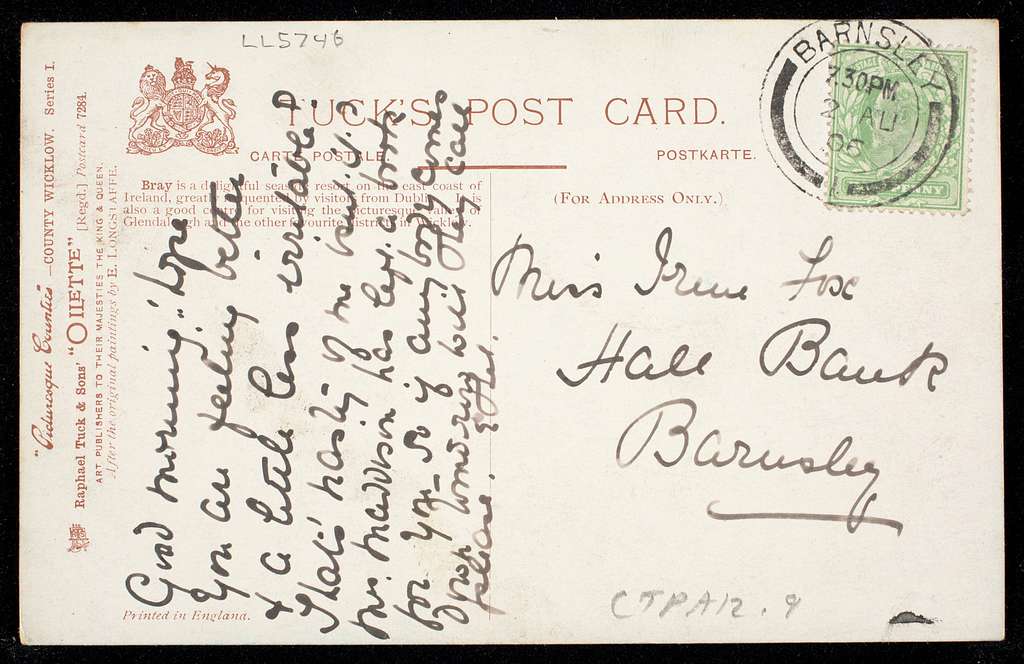 LL5746
"Picturesque Counties"—COUNTY WICKLOW. Series I.
Raphael Tuck & Sons' "OILETTE" [Regd.] Postcard 7284.
ART PUBLISHERS TO THEIR MAJESTIES THE KING & QUEEN.
After the original paintings by E. LONGSTAFFE.
TUCK'S POST CARD.
CARTE POSTALE.
POSTKARTE.
Bray is a delightful seaside resort on the east coast of
Ireland, greatly frequented by visitors from Dublin. It is
also a good centre for visiting the picturesque valley of
Glendalough and the other favourite districts in Wicklow.
(FOR ADDRESS ONLY.)
BARNSLEY
7.30PM
2 AU
06
PENNY
Good morning "hope
you are feeling better
& a little less irritable?
That's nasty of me isn't it?
Mrs. Maddison has kept a book
for you – so if any boy comes
from will they call
please.
Miss Irene Fox
Hall Bank
Barnsley
Printed in England.
CTPA12.9